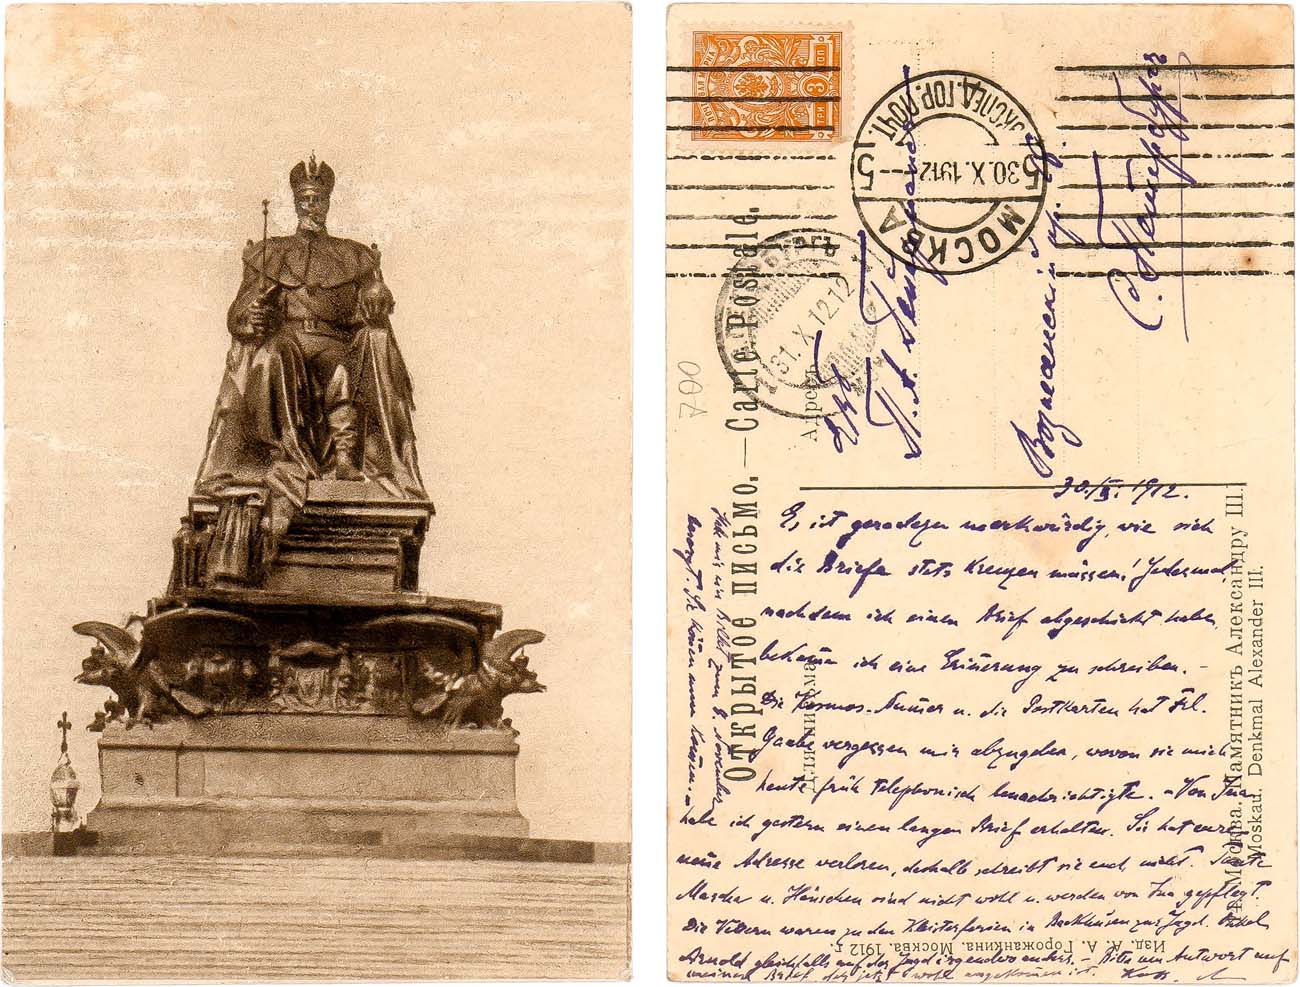 ПОЧТОВАЯ МАРКА
3 КОП
ТРИ
МОСКВА
5 30.X.1912 5
ЭКСПЕД. ГОР. ПОЧТ.
31. X. 12.12
ОТКРЫТОЕ ПИСЬМО. — Carte Postale.
Адресъ
Для письма
С. Петербургъ
Вознесенскій пр.
700
30./X. 1912.
Es ist geradezu merkwürdig, wie sich
die Briefe stets kreuzen müssen! Jedesmal,
nachdem ich einen Brief abgeschickt habe,
bekomm ich eine Erinnerung zu schreiben. –
Die Kosmos-Numer u. die Postkarten hat Frl.
Gaabe vergessen mir abzugeben, wovon sie mich
heute früh telephonisch benachrichtigte. – Von Ina
habe ich gestern einen langen Brief erhalten. Sie hat eure
neue Adresse verloren, deshalb schreibt sie euch nicht. Tante
Mascha u. Hänschen sind nicht wohl u. werden von Ina gepflegt.
Die Vettern waren zu den Kleisterferien in Backhüsen zur Jagd. Onkel
Arnold gleichfalls auf der Jagd irgendwo anders. – Bitte um Antwort auf
meinen Brief, der jetzt wohl angekommen ist.
Hab mir ein Billet zum 8. November
besorgt.
74. Москва. Памятникъ Александру III.
Moskau. Denkmal Alexander III.
Изд. А. А. Горожанкина. Москва. 1912 г.